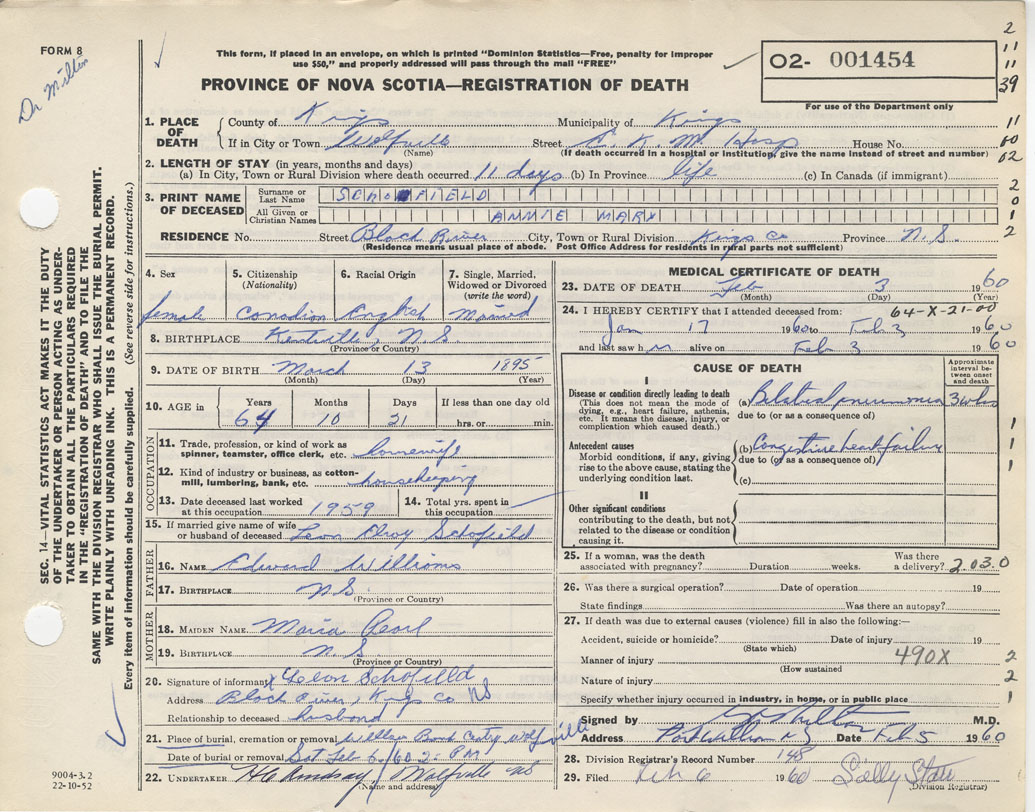 FORM 8
Dr Miller
This form, if placed in an envelope, on which is printed "Dominion Statistics—Free, penalty for improper
use $50," and properly addressed will pass through the mail "FREE"
PROVINCE OF NOVA SCOTIA—REGISTRATION OF DEATH
O2- 001454
For use of the Department only
2
11
11
39
1. PLACE OF DEATH
County of Kings Municipality of Kings 11
If in City or Town Wolfville Street E. K. M. Hosp House No. 60
(Name) (If death occurred in a hospital or institution, give the name instead of street and number) 02
2. LENGTH OF STAY (in years, months and days)
(a) In City, Town or Rural Division where death occurred 11 days (b) In Province life (c) In Canada (if immigrant) 2
3. PRINT NAME OF DECEASED
Surname or Last Name SCHOFIELD 0
All Given or Christian Names ANNIE MARY 1
RESIDENCE No. Street Black River City, Town or Rural Division Kings Co Province N.S. 2
(Residence means usual place of abode. Post Office Address for residents in rural parts not sufficient)
4. Sex
female
5. Citizenship
(Nationality)
Canadian
6. Racial Origin
English
7. Single, Married,
Widowed or Divorced
(write the word)
Married
8. BIRTHPLACE Kentville, N.S.
(Province or Country)
9. DATE OF BIRTH March 13 1895
(Month) (Day) (Year)
10. AGE in
Years Months Days If less than one day old
64 10 21 hrs. or min.
OCCUPATION
11. Trade, profession, or kind of work as
spinner, teamster, office clerk, etc. housewife
12. Kind of industry or business, as cotton-
mill, lumbering, bank, etc. housekeeping
13. Date deceased last worked
at this occupation 1959
14. Total yrs. spent in
this occupation
15. If married give name of wife
or husband of deceased Leon Elroy Schofield
FATHER
16. NAME Edward Williams
17. BIRTHPLACE N.S.
(Province or Country)
MOTHER
18. MAIDEN NAME Maria Pearl
19. BIRTHPLACE N.S.
(Province or Country)
20. Signature of informant X Leon Schofield
Address Black River, Kings Co NS
Relationship to deceased husband
21. Place of burial, cremation or removal Wolfville
Date of burial or removal Sat Feb 6/60 2. P.M
22. UNDERTAKER Lindsay / Wolfville NS
(Name and address)
MEDICAL CERTIFICATE OF DEATH
23. DATE OF DEATH Feb 3 1960
(Month) (Day) (Year)
24. I HEREBY CERTIFY that I attended deceased from: 64-X-21-00
Jan 17 1960 to Feb 3 1960
and last saw h alive on Feb 3 1960
CAUSE OF DEATH
Approximate
interval be-
tween onset
and death
I
Disease or condition directly leading to death
(This does not mean the mode of
dying, e.g., heart failure, asthenia,
etc. It means the disease, injury, or
complication which caused death.)
(a) Bilateral pneumonia 3 wks
due to (or as a consequence of)
1
Antecedent causes
Morbid conditions, if any, giving
rise to the above cause, stating the
underlying condition last.
(b) Congestive heart failure 1
due to (or as a consequence of) 1
(c)
II
Other significant conditions
contributing to the death, but not
related to the disease or condition
causing it.
25. If a woman, was the death
associated with pregnancy? Duration weeks.
Was there
a delivery? 2.03.0
26. Was there a surgical operation? Date of operation 19
State findings Was there an autopsy?
27. If death was due to external causes (violence) fill in also the following:—
Accident, suicide or homicide? Date of injury 19
(State which)
Manner of injury 490X 2
(How sustained
Nature of injury 2
Specify whether injury occurred in industry, in home, or in public place 1
Signed by M.D.
Address Port Williams NS Date Feb 5 1960
28. Division Registrar's Record Number 148
29. Filed Feb 6 1960 Sally Starr
(Division Registrar)
SEC. 14—VITAL STATISTICS ACT MAKES IT THE DUTY
OF THE UNDERTAKER OR PERSON ACTING AS UNDER-
TAKER TO OBTAIN ALL THE PARTICULARS REQUIRED
IN THE "REGISTRATION OF DEATH" AND TO FILE THE
SAME WITH THE DIVISION REGISTRAR WHO SHALL ISSUE THE BURIAL PERMIT.
WRITE PLAINLY WITH UNFADING INK. THIS IS A PERMANENT RECORD.
Every item of information should be carefully supplied. (See reverse side for instructions.)
9004-3.2
22-10-52